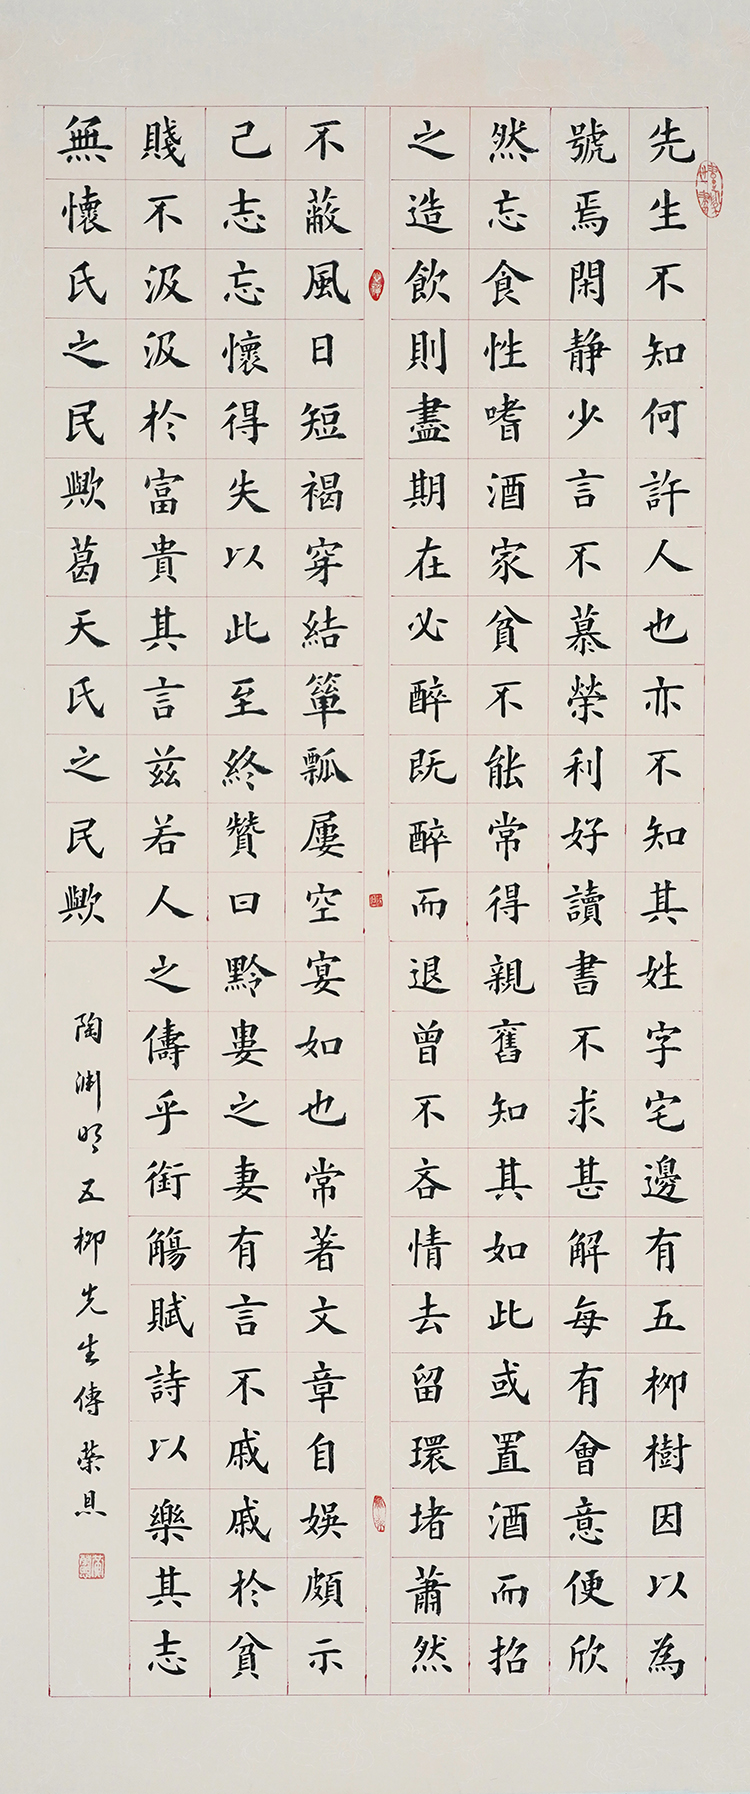 先生不知何許人也亦不知其姓字宅邊有五柳樹因以為
號焉閑静少言不慕榮利好讀書不求甚解每有會意便欣
然忘食性嗜酒家貧不能常得親舊知其如此或置酒而招
之造飲則盡期在必醉既醉而退曾不吝情去留環堵蕭然
不蔽風日短褐穿結簞瓢屢空宴如也常著文章自娛頗示
己志忘懷得失以此至終贊曰黔婁之妻有言不戚戚於貧
賤不汲汲於富貴其言兹若人之儔乎銜觴賦詩以樂其志
無懷氏之民歟葛天氏之民歟
陶淵明五柳先生傳 榮